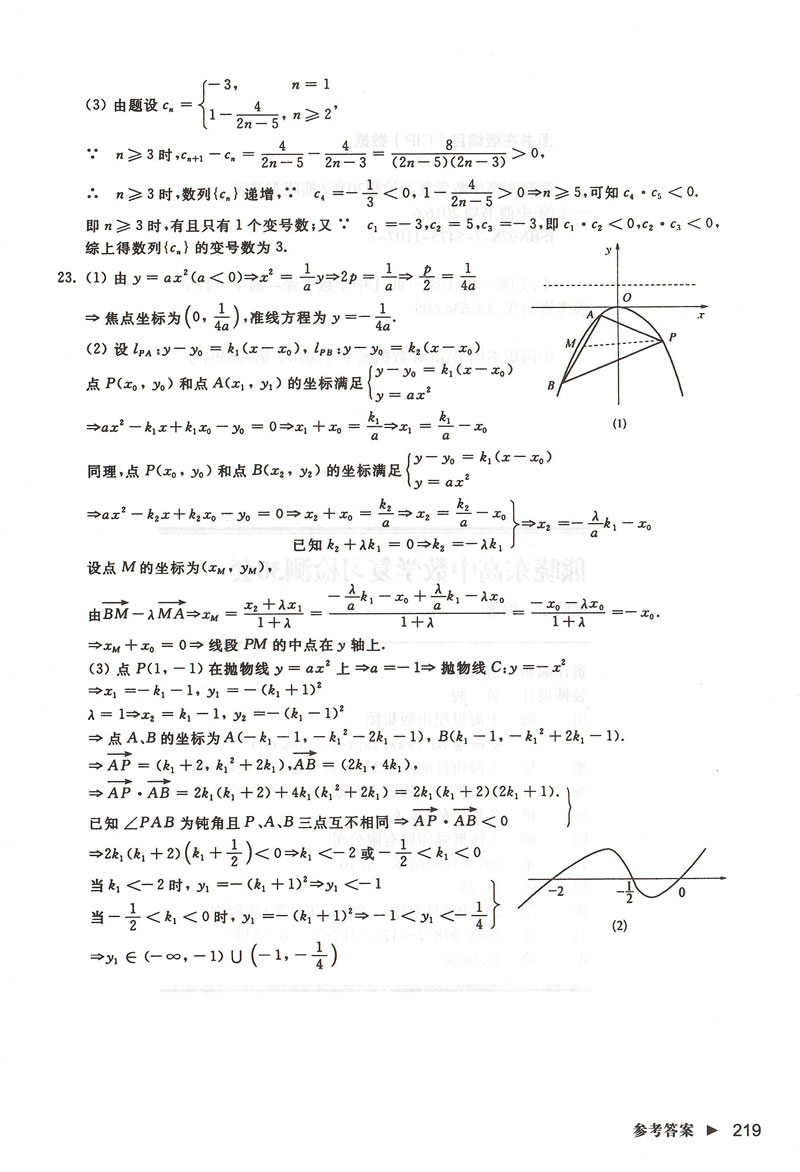 (3) 由题设 cₙ = { −3, n = 1
1 − 4/(2n−5), n ⩾ 2 ,
∵ n ⩾ 3 时,cₙ₊₁ − cₙ = 4/(2n−5) − 4/(2n−3) = 8/((2n−5)(2n−3)) > 0,
∴ n ⩾ 3 时,数列{cₙ}递增,∵ c₄ = −1/3 < 0, 1 − 4/(2n−5) > 0⇒n ⩾ 5,可知 c₄ · c₅ < 0.
即 n ⩾ 3 时,有且只有 1 个变号数;又 ∵ c₁ = −3,c₂ = 5,c₃ = −3,即 c₁ · c₂ < 0,c₂ · c₃ < 0,
综上得数列{cₙ}的变号数为 3.
23. (1) 由 y = ax²(a < 0)⇒x² = 1/a y⇒2p = 1/a⇒ p/2 = 1/4a
⇒ 焦点坐标为(0, 1/4a),准线方程为 y = −1/4a.
(2) 设 l_PA : y − y₀ = k₁(x − x₀), l_PB : y − y₀ = k₂(x − x₀)
点 P(x₀, y₀) 和点 A(x₁, y₁) 的坐标满足{ y − y₀ = k₁(x − x₀)
y = ax²
⇒ax² − k₁x + k₁x₀ − y₀ = 0⇒x₁ + x₀ = k₁/a⇒x₁ = k₁/a − x₀
同理,点 P(x₀, y₀) 和点 B(x₂, y₂) 的坐标满足{ y − y₀ = k₁(x − x₀)
y = ax²
⇒ax² − k₂x + k₂x₀ − y₀ = 0⇒x₂ + x₀ = k₂/a⇒x₂ = k₂/a − x₀ } ⇒x₂ = −λ/a k₁ − x₀
已知 k₂ + λk₁ = 0⇒k₂ = −λk₁
设点 M 的坐标为(x_M, y_M),
由BM − λMA⇒x_M = (x₂ + λx₁)/(1+λ) = (−λ/a k₁ − x₀ + λ/a k₁ − λx₀)/(1+λ) = (−x₀ − λx₀)/(1+λ) = −x₀.
⇒x_M + x₀ = 0⇒ 线段 PM 的中点在 y 轴上.
(3) 点 P(1, −1) 在抛物线 y = ax² 上 ⇒a = −1⇒ 抛物线 C:y = −x²
⇒x₁ = −k₁ − 1, y₁ = −(k₁ + 1)²
λ = 1⇒x₂ = k₁ − 1, y₂ = −(k₁ − 1)²
⇒ 点 A、B 的坐标为 A(−k₁ − 1, −k₁² − 2k₁ − 1), B(k₁ − 1, −k₁² + 2k₁ − 1).
⇒ AP = (k₁ + 2, k₁² + 2k₁),AB = (2k₁, 4k₁),
⇒ AP · AB = 2k₁(k₁ + 2) + 4k₁(k₁² + 2k₁) = 2k₁(k₁ + 2)(2k₁ + 1). }
已知 ∠PAB 为钝角且 P、A、B 三点互不相同 ⇒ AP · AB < 0
⇒2k₁(k₁ + 2)(k₁ + 1/2) < 0⇒k₁ < −2 或 −1/2 < k₁ < 0
当 k₁ < −2 时, y₁ = −(k₁ + 1)²⇒y₁ < −1
当 −1/2 < k₁ < 0 时, y₁ = −(k₁ + 1)²⇒ −1 < y₁ < −1/4 }
⇒y₁ ∈ (−∞, −1) ∪ (−1, −1/4)
y
O
x
A
M
P
B
(1)
−2 −1/2 0
(2)
参考答案 ▶ 219